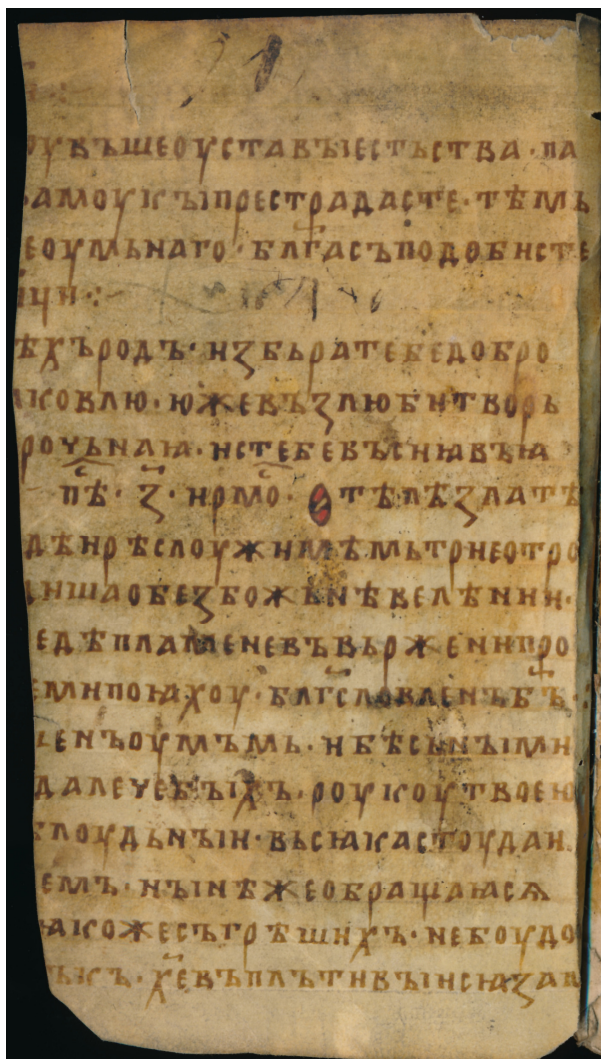 оувъшеоуставꙑестьства · па
амоукꙑпрестрадасте · тѣмь
еоумьнаго · блг҃асъподобисте
щи :-
ѣхъродъ · избьратебедобро
ковлю · южевъзлюбитворь
роучьнаꙗ · истебевъсиꙗвъꙗ
пѣ҃ · з҃ · ирмо҃ · Ѳтѣлѣзлатѣ
дѣирѣслоужимѣмьтриеотро
дишаобезбожьнѣвелѣнии ·
едѣпламеневъвьржениꙇпро
емипоꙗхоу · блг҃словленъб҃ъ ·
ленъоумъмь · ибѣсънꙑми
далечебꙑхъ · роукоутвоею
блоудьнꙑи · вьсꙗкастоудаи
емъ · нꙑнѣжеобращаꙗсѧ
ꙗкожесъгрѣшихъ · небоудо
къ · х҃евъплътивꙑисꙗза